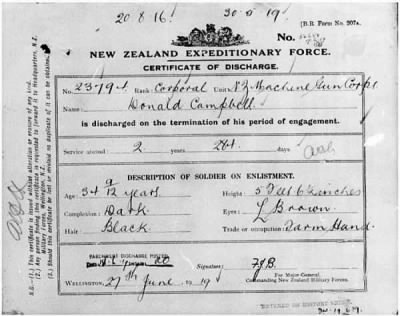 20·8·16. 30·5·19.
[B.R. Form No. 207A.
No.
NEW ZEALAND EXPEDITIONARY FORCE.
CERTIFICATE OF DISCHARGE.
No. 23/794 Rank: Corporal Unit: N.Z. Machine Gun Corps
Name: Donald Campbell.
is discharged on the termination of his period of engagement.
Service abroad 2 years 264 days
DESCRIPTION OF SOLDIER ON ENLISTMENT.
Age: 34 9/12 years. Height: 5 feet 6 ½ inches
Completion: Dark Eyes: L Brown
Hair: Black Trade or occupation: Farm Hand.
PARCHMENT DISCHARGE POSTED
Signature: FJB.
For Major General
WELLINGTON, 27th June 1919
Commanding New Zealand Military Forces.
N.B.—(1.) This certificate is issued without alteration or erasure of any kind.
(2.) Any person finding this certificate is requested to forward it to Headquarters, N.Z. Military Forces, Wellington, N.Z.
(3.) Should this certificate be lost or mislaid no duplicate of it can be obtained.